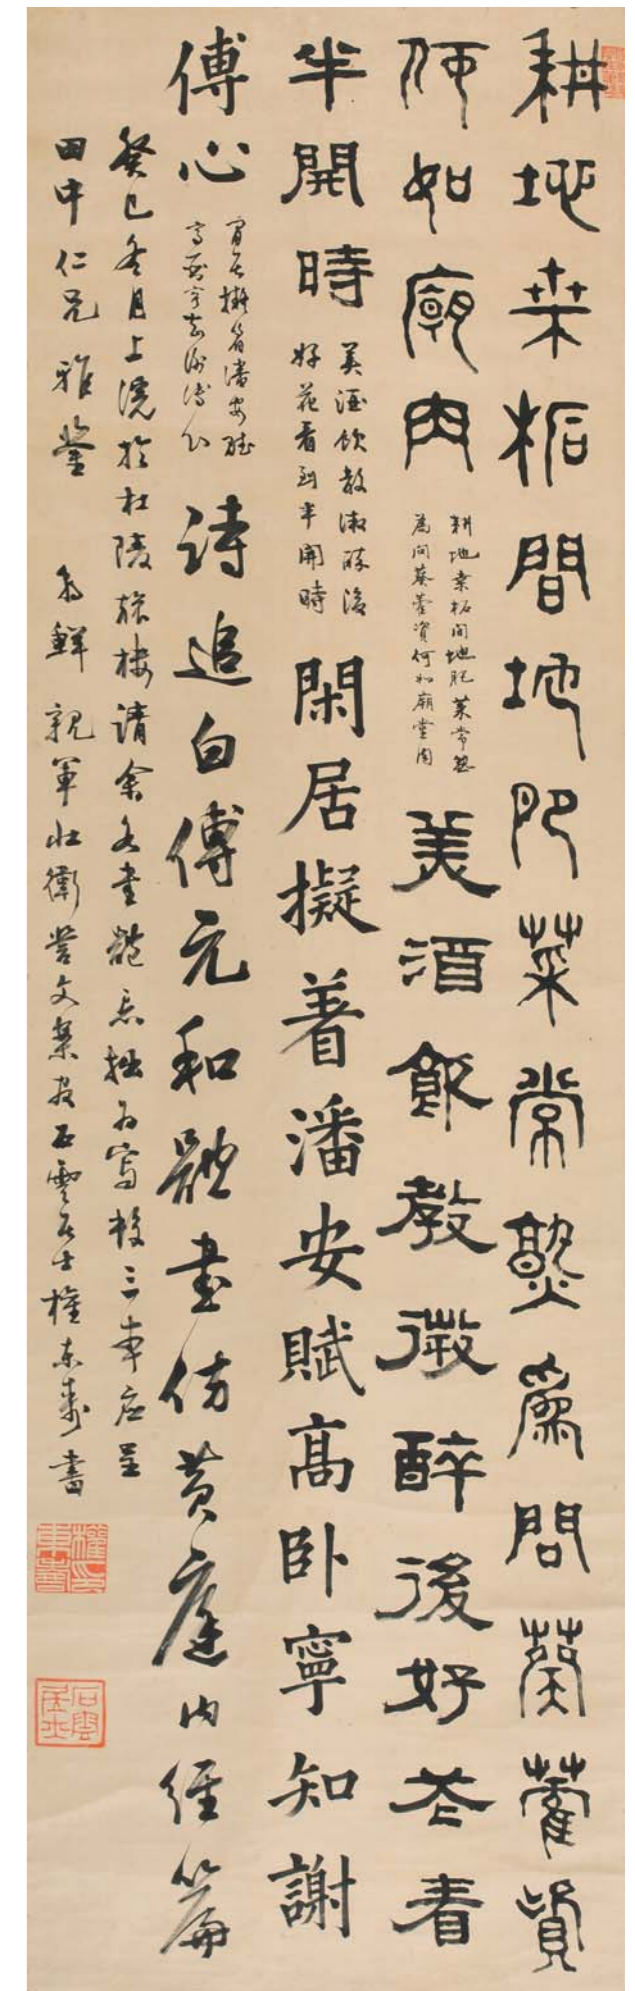 耕地桒柘間地肥菜常熟為問葵藿資
何如廟肉
耕地桒柘间地肥菜常熟
為问葵藿資何如廟堂肉
美酒飲教微醉後好花看
半開時
美酒飲教微醉後
好花看到半開時
閑居擬着潘安賦高卧寧知謝
傅心
閒居擬着潘安賦
高卧寧知謝傅心
詩追白傅元和體書仿黄庭内經篇
癸巳冬月上浣於杜陵旅樓請余各書體忘拙為寫於三本应呈
田中仁兄雅鉴 朝鮮親軍壯衛營文案石雲居士權東壽書
權東壽印
石雲居士